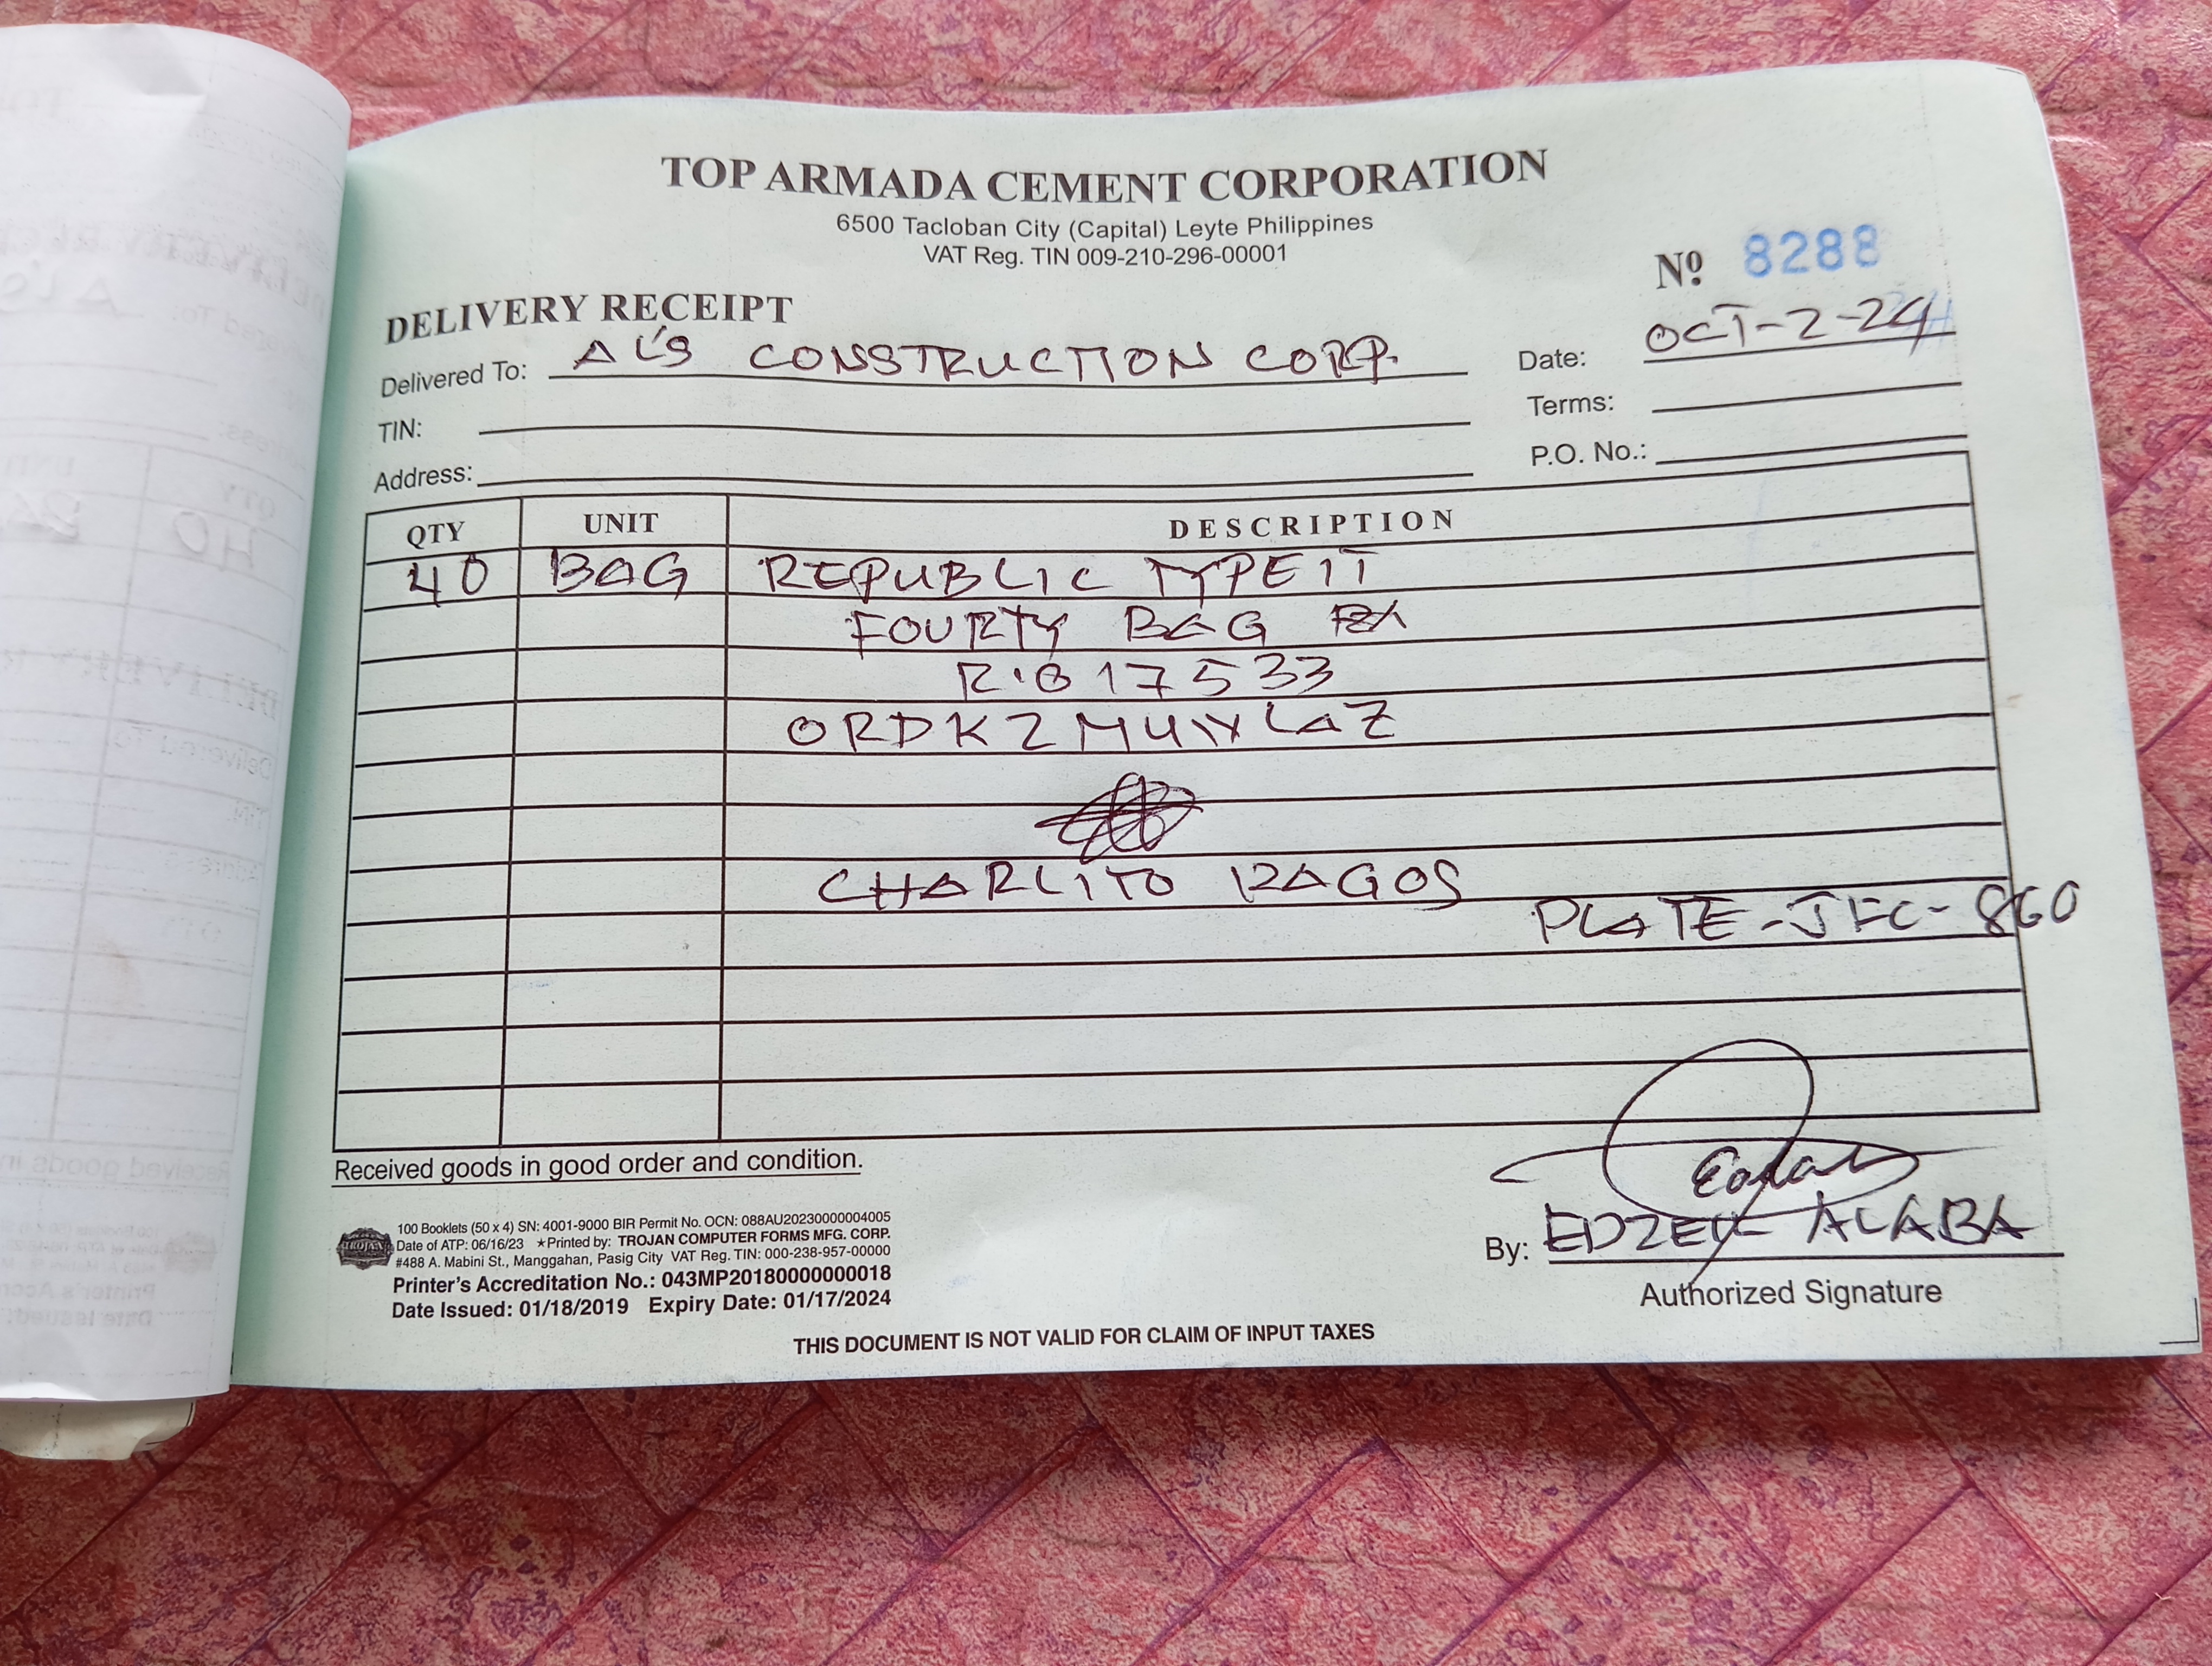 TOP ARMADA CEMENT CORPORATION
6500 Tacloban City (Capital) Leyte Philippines
VAT Reg. TIN 009-210-296-00001
Nº 8288
DELIVERY RECEIPT
Delivered To: AL'S CONSTRUCTION CORP.
Date: OCT-2-24
TIN:
Terms:
Address:
P.O. No.:
QTY UNIT DESCRIPTION
40 BAG REPUBLIC TYPE 1T
FOURTY BAG
R.O 17533
CHARLITO RAGOS
PLATE-JFC-860
Received goods in good order and condition.
100 Booklets (50 x 4) SN: 4001-9000 BIR Permit No. OCN: 088AU20230000004005
Date of ATP: 06/16/23 ★Printed by: TROJAN COMPUTER FORMS MFG. CORP.
#488 A. Mabini St., Manggahan, Pasig City VAT Reg. TIN: 000-238-957-00000
Printer's Accreditation No.: 043MP20180000000018
Date Issued: 01/18/2019 Expiry Date: 01/17/2024
TROJAN
By: EDZEL ALABA
Authorized Signature
THIS DOCUMENT IS NOT VALID FOR CLAIM OF INPUT TAXES